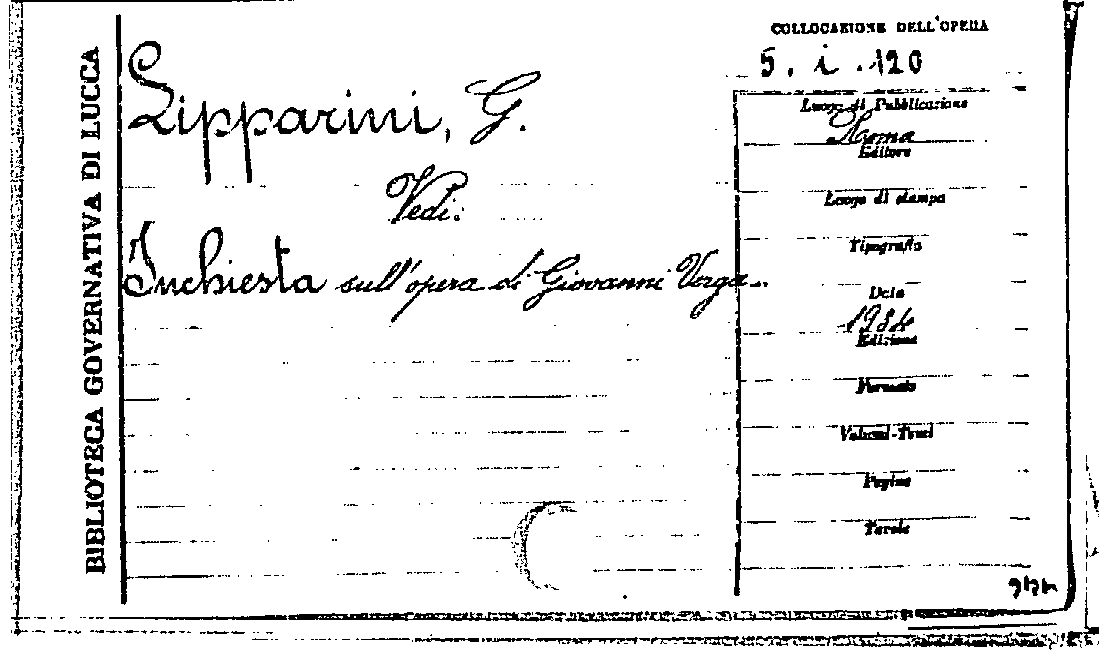 BIBLIOTECA GOVERNATIVA DI LUCCA
Lipparini, G.
Vedi:
Inchiesta sull'opera di Giovanni Verga..
COLLOCAZIONE DELL'OPERA
5. i. 120
Luogo di Pubblicazione
Roma
Editore
Luogo di stampa
Tipografia
Data
1934
Edizione
Formato
Volumi-Tomi
Pagine
Tavole